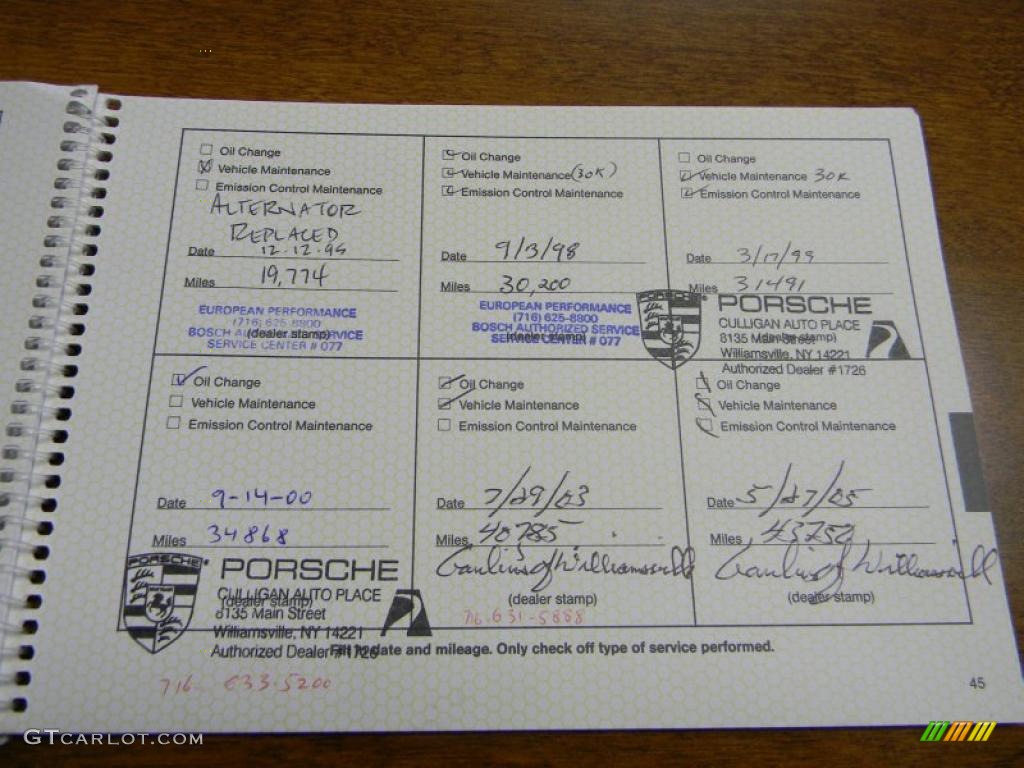 Oil Change
Vehicle Maintenance
Emission Control Maintenance
ALTERNATOR
REPLACED
Date 12.12.95
Miles 19,774
EUROPEAN PERFORMANCE
(716) 625-8800
BOSCH AUTHORIZED SERVICE
(dealer stamp)
SERVICE CENTER # 077
Oil Change
Vehicle Maintenance (30K)
Emission Control Maintenance
Date 9/3/98
Miles 30,200
EUROPEAN PERFORMANCE
(716) 625-8800
BOSCH AUTHORIZED SERVICE
(dealer stamp)
SERVICE CENTER # 077
Oil Change
Vehicle Maintenance 30K
Emission Control Maintenance
Date 3/17/99
Miles 31491
PORSCHE
PORSCHE
CULLIGAN AUTO PLACE
8135 Main Street
(dealer stamp)
Williamsville, NY 14221
Authorized Dealer #1726
Oil Change
Vehicle Maintenance
Emission Control Maintenance
Date 9-14-00
Miles 34868
PORSCHE
PORSCHE
CULLIGAN AUTO PLACE
(dealer stamp)
8135 Main Street
Williamsville, NY 14221
Authorized Dealer #1726
716- 633-5200
Oil Change
Vehicle Maintenance
Emission Control Maintenance
Date 7/29/03
Miles 40785
of Williamsville
(dealer stamp)
716-631-5888
Oil Change
Vehicle Maintenance
Emission Control Maintenance
Date 5/27/05
Miles 43752
of Williamsvill
(dealer stamp)
Fill in date and mileage. Only check off type of service performed.
45
GTCARLOT.COM